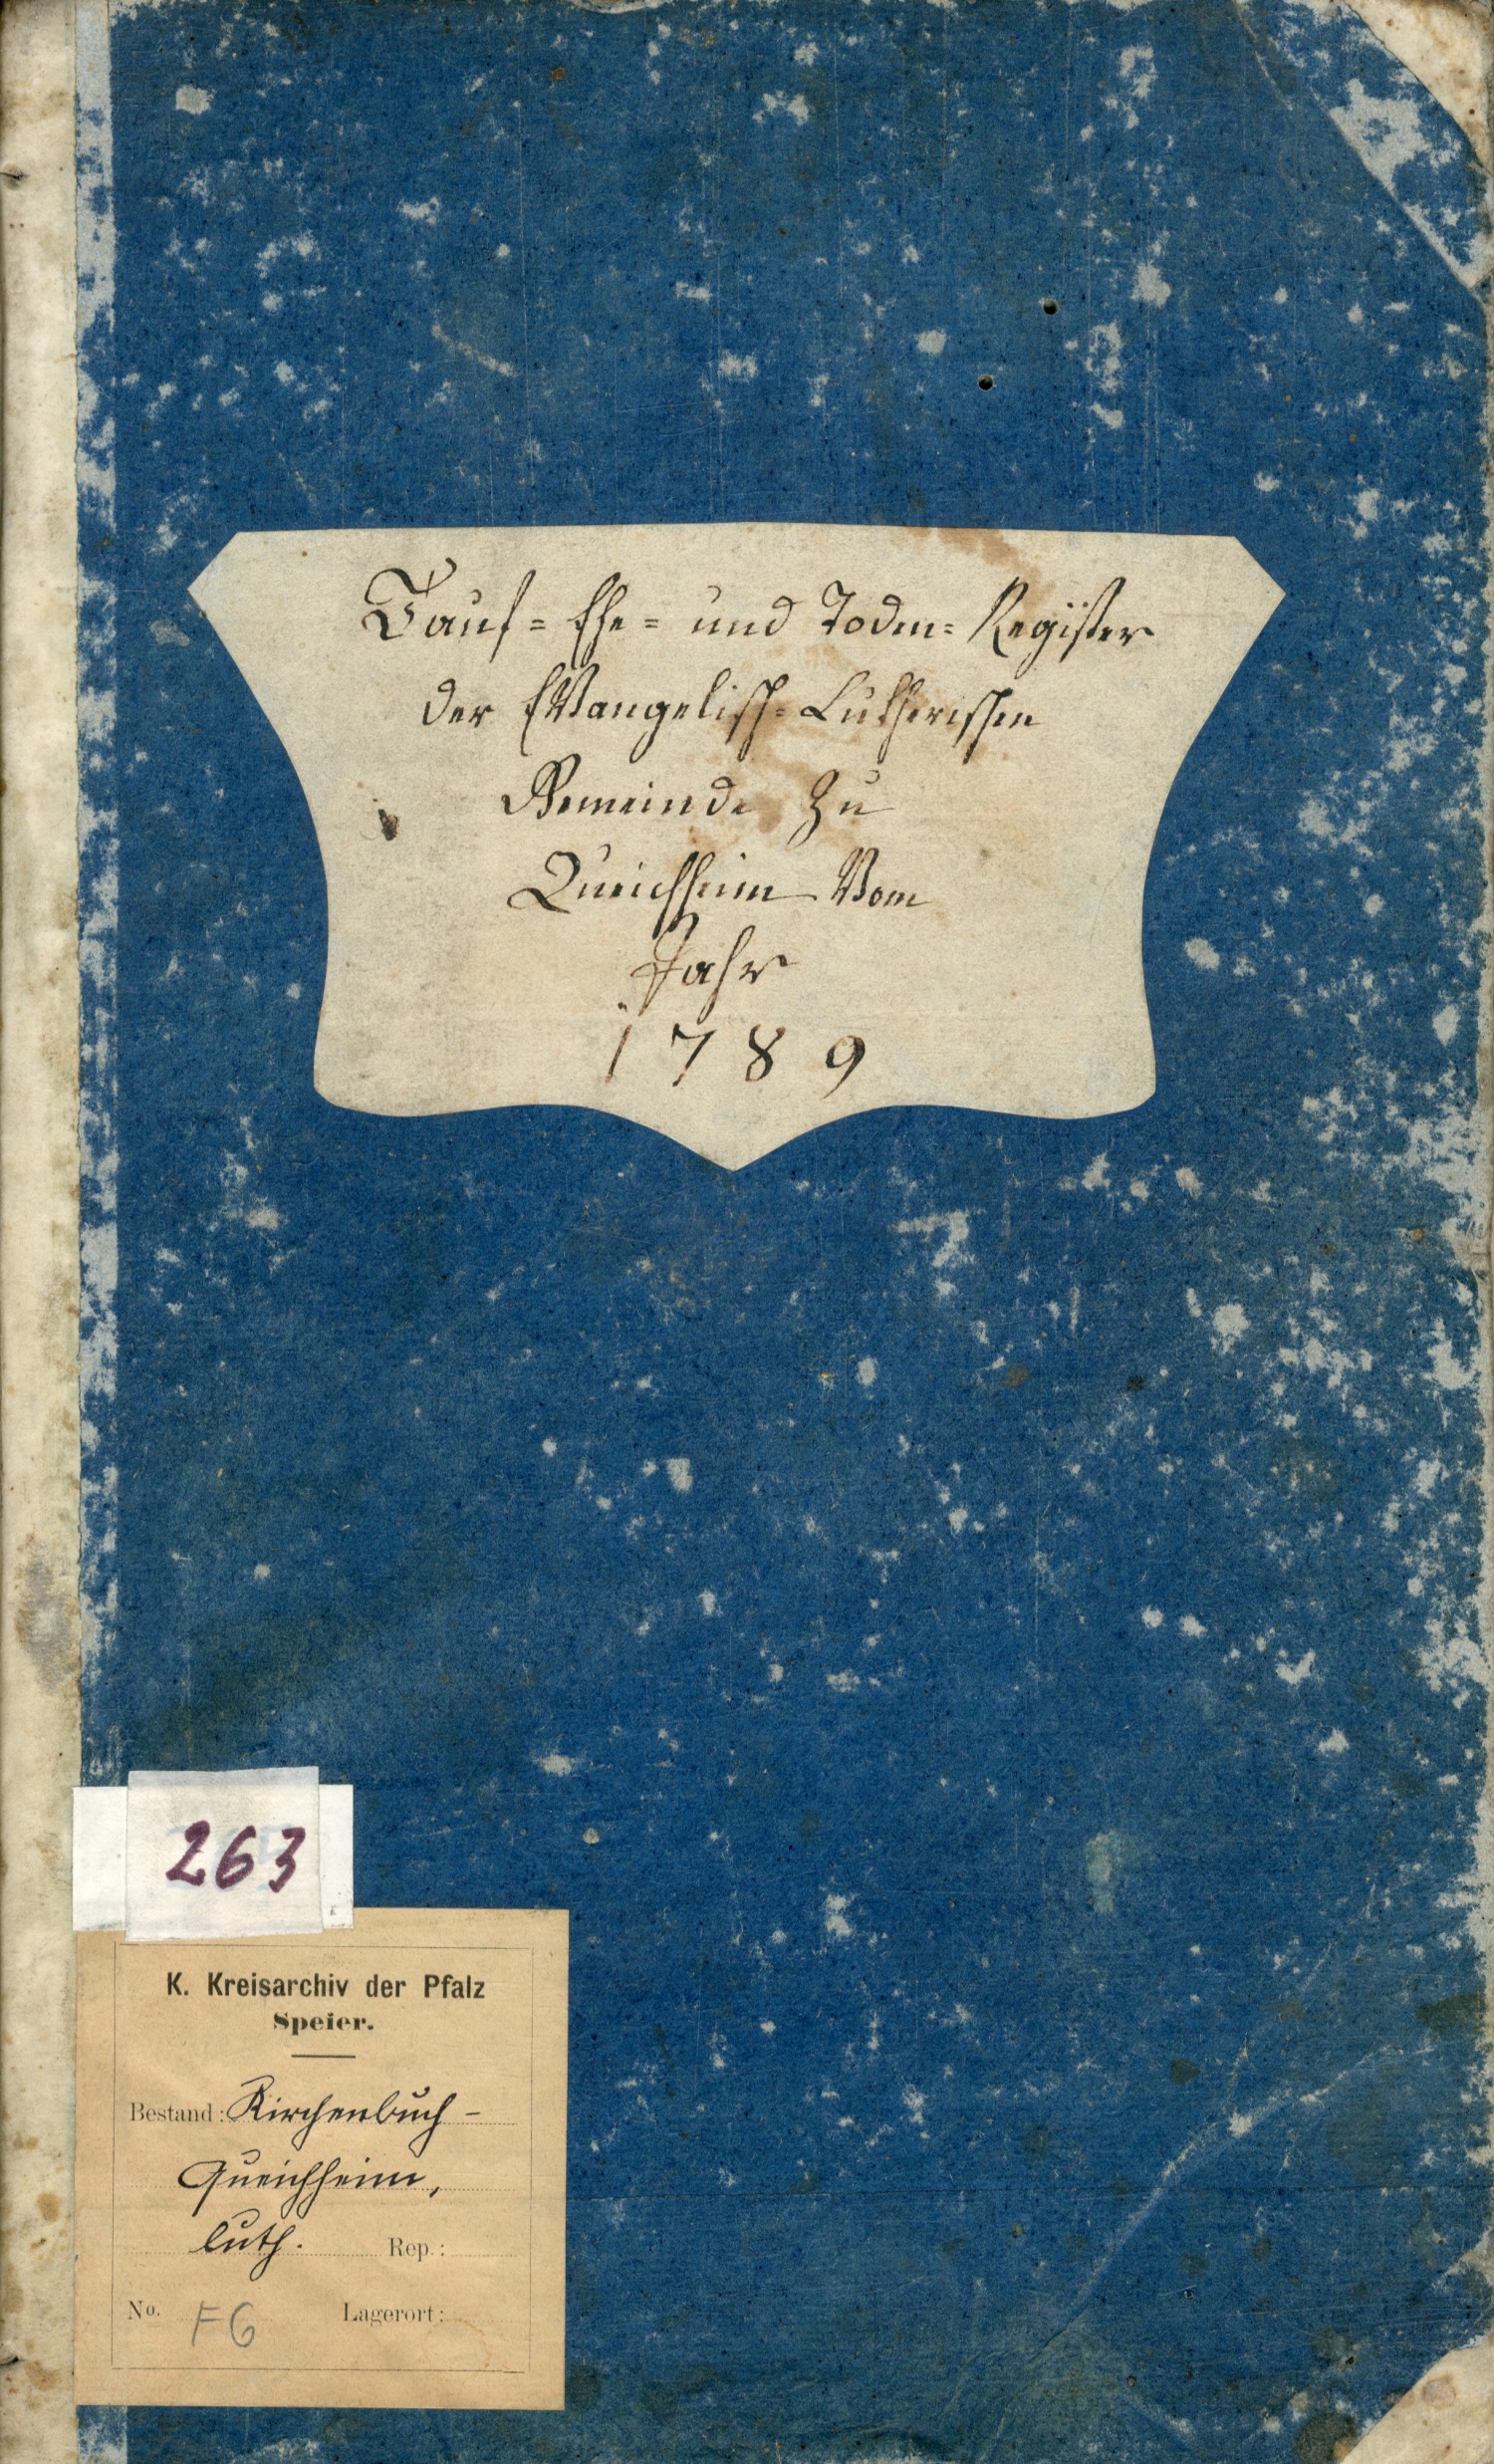 Tauf= Ehe= und Toden= Regiſter
der EVangeliſch= Lutheriſchen
Gemeinde Zu
Queichheim Vom
Jahr
1789
263
K. Kreisarchiv der Pfalz
Speier.
Bestand: Kirchenbuch -
Queichheim,
luth. Rep.:
No. F6 Lagerort: